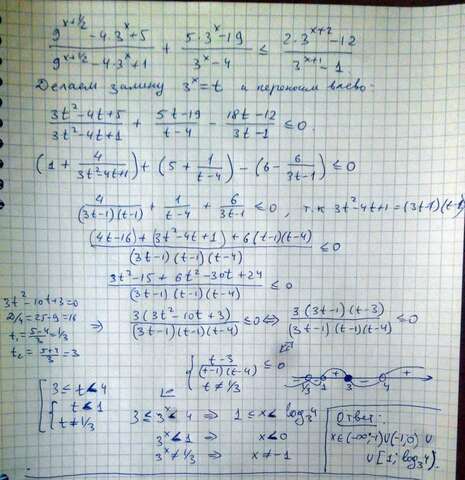 (9^{x+1/2} - 4·3^x + 5)/(9^{x+1/2} - 4·3^x + 1) + (5·3^x - 19)/(3^x - 4) ≤ (2·3^{x+2} - 12)/(3^{x+1} - 1)
Делаем замину 3^x = t и переносим влево:
(3t² - 4t + 5)/(3t² - 4t + 1) + (5t - 19)/(t - 4) - (18t - 12)/(3t - 1) ≤ 0.
(1 + 4/(3t² 4t + 1)) + (5 + 1/(t - 4)) - (6 - 6/(3t - 1)) ≤ 0
4/((3t-1)(t-1)) + 1/(t-4) + 6/(3t-1) ≤ 0, т.к 3t² - 4t + 1 = (3t-1)(t-1)
((4t - 16) + (3t² - 4t + 1) + 6(t-1)(t-4))/((3t-1)(t-1)(t-4)) ≤ 0
(3t² - 15 + 6t² - 30t + 24)/((3t-1)(t-1)(t-4)) ≤ 0
3t² - 10t + 3 = 0
D/4 = 25 - 9 = 16
t₁ = (5-4)/3 = 1/3
t₂ = (5+4)/3 = 3
⇒ 3(3t² - 10t + 3)/((3t-1)(t-1)(t-4)) ≤ 0 ⇔ 3(3t-1)(t-3)/((3t-1)(t-1)(t-4)) ≤ 0
{ (t-3)/((t-1)(t-4)) ≤ 0
t ≠ 1/3
- - + - +
1/3 1 3 4
[ 3 ≤ t < 4
{ t < 1
t ≠ 1/3
3 ≤ 3^x < 4 ⇒ 1 ≤ x < log₃4
3^x < 1 ⇒ x < 0
3^x ≠ 1/3 ⇒ x ≠ -1
Ответ:
x ∈ (-∞; -1) ∪ (-1; 0) ∪
∪ [1; log₃4).